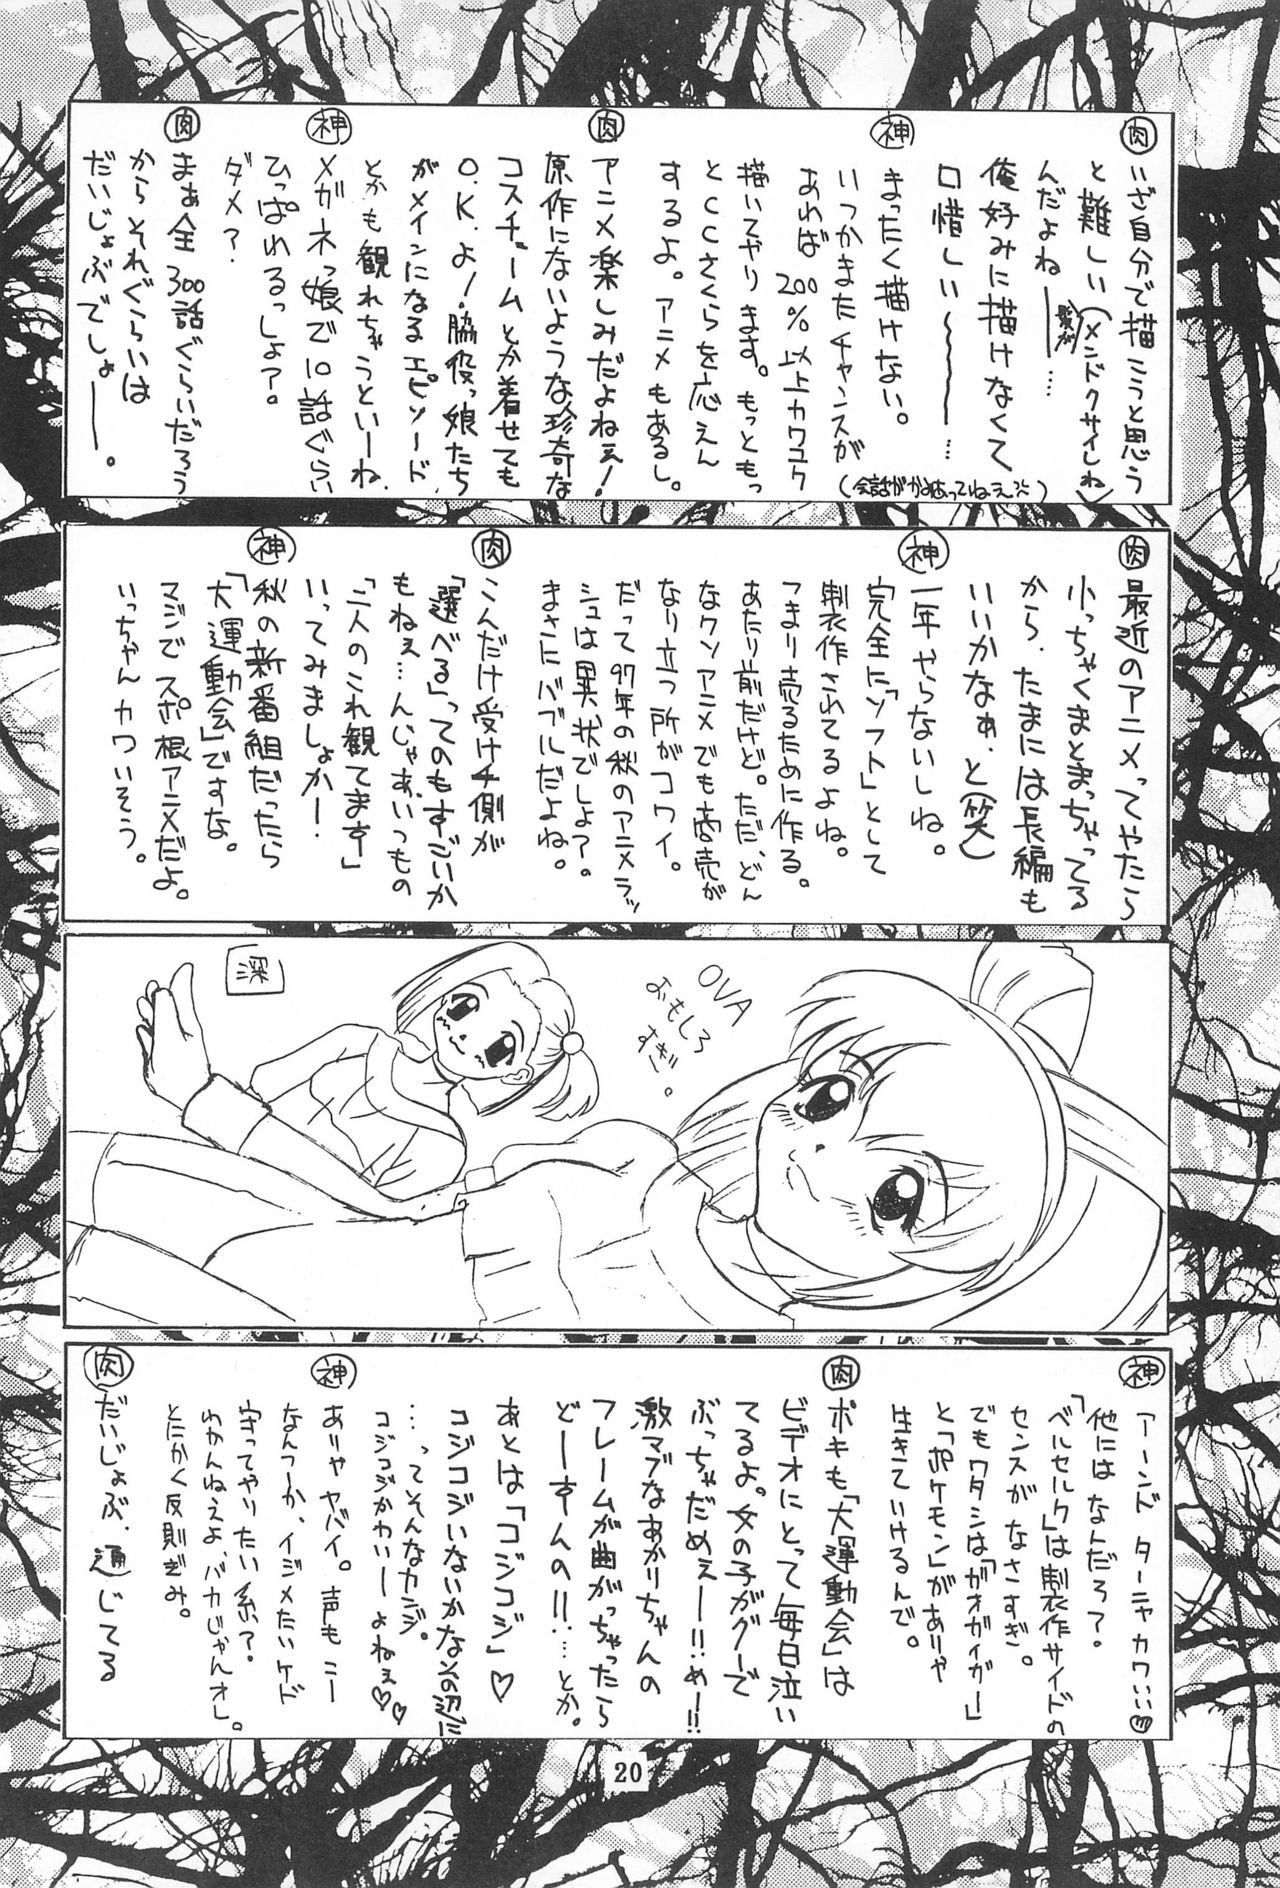 肉
いざ自分で描こうと思う
と難しい(メンドクサイしね)
髪が
んだよねー…
俺好みに描けなくて
口惜しい～～～…
神
まったく描けない。
いつかまたチャンスが
あれば200%以上カワユク
描いてやります。もっともっ
とCCさくらを応えん
するよ。アニメもあるし。
(会話がかみあってねえ
肉
アニメ楽しみだよねぇ!
原作にないような珍奇な
コスチュームとか着せても
O.K.よ!脇役っ娘たち
がメインになるエピソード
とかも観れちゃうといーね
神
メガネっ娘で10話ぐらい
ひっぱれるっしょ?
ダメ?
肉
まぁ全300話ぐらいだろう
からそれぐらいは
だいじょぶでしょー。
肉
最近のアニメってやたら
小っちゃくまとまっちゃってる
から、たまには長編も
いいかなぁ、と(笑)
神
一年やらないしね。
完全に「ソフト」として
製作されてるよね。
つまり売るために作る。
あたり前だけど。ただ、どん
なクソアニメでも商売が
なり立つ所がコワイ。
だって97年の秋のアニメラッ
シュは異状でしょ?。
まさにバブルだよね。
肉
こんだけ受けチ側が
「選べる」ってのもすごいか
もねぇ…んじゃあいつもの
「二人のこれ観てます」
いってみましょか!
神
秋の新番組だったら
「大運動会」ですな。
マジでスポ根アニメだよ。
いっちゃんカワいそう。
深
OVA
おもしろ
すぎ。
神
アーンド ターニャカワいい♡
他にはなんだろ?
「ベルセルク」は製作サイドの
センスがなさすぎ。
でもワタシは「ガオガイガー」
と「ポケモン」がありゃ
生きていけるんで。
肉
ボキも「大運動会」は
ビデオにとって毎日泣い
てるよ。女の子がグーで
ぶっちゃだめぇー!!め!!
激マブなあかりちゃんの
フレームが曲がっちゃったら
どーすんの!!…とか。
あとは「コジコジ」♡
コジコジいないかなその辺に
…ってそんなカンジ。
コジコジかわいーよねぇ♡♡
神
ありゃヤバイ。声もこー
なんつーか、イジメたいケド
守ってやりたい系?
わかんねえよ、バカじゃんオレ。
とにかく反則ぎみ。
肉
だいじょぶ、通じてる
20